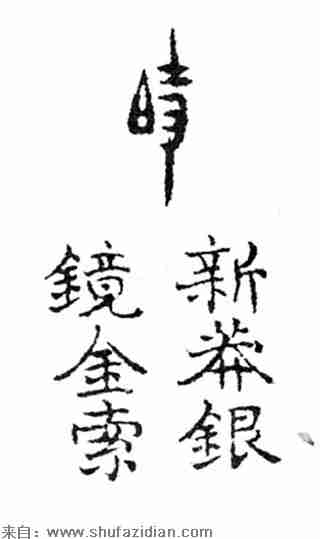 時
新莽銀
鏡金索
来自：www.shufazidian.com